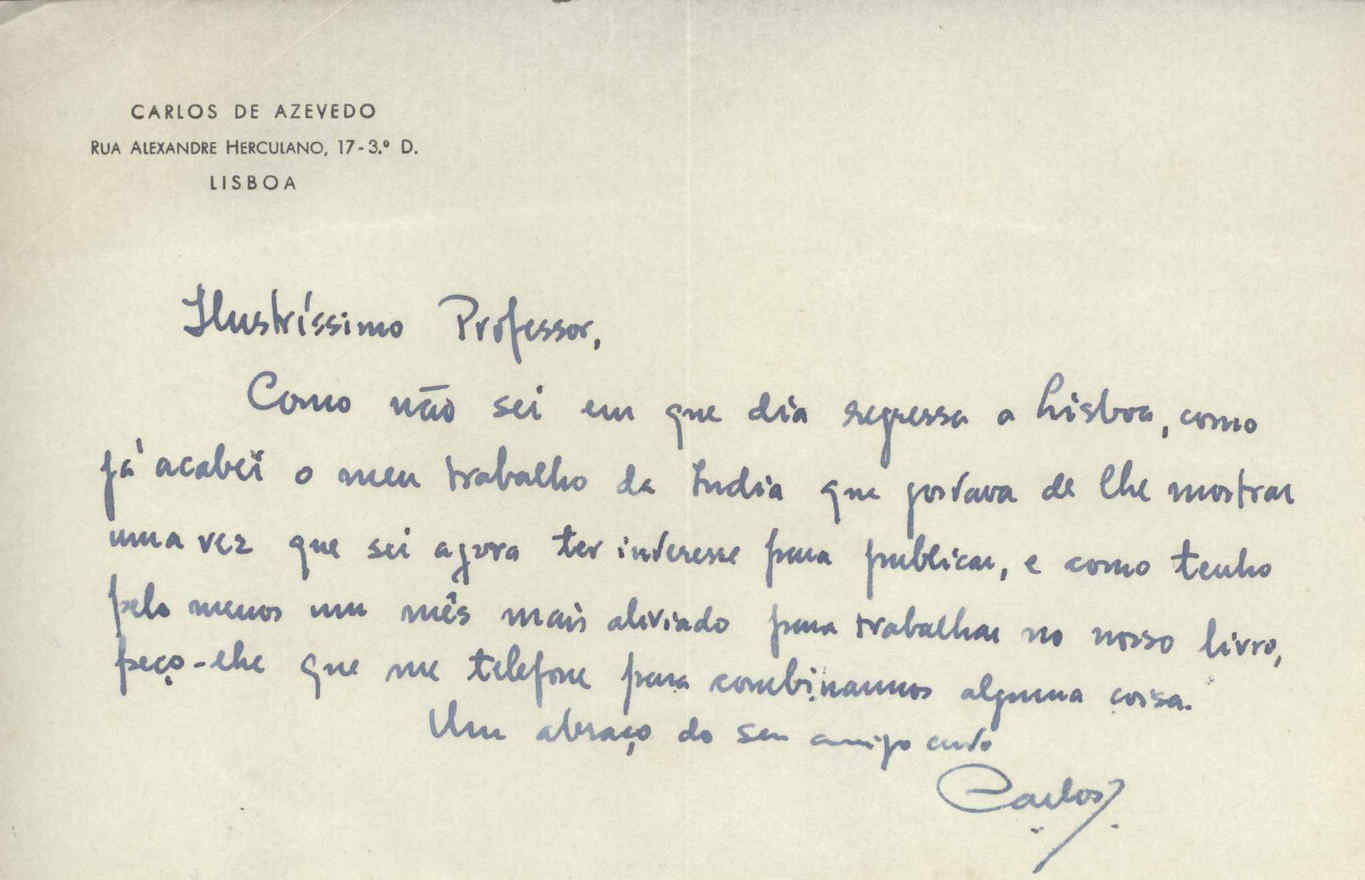 CARLOS DE AZEVEDO
RUA ALEXANDRE HERCULANO, 17-3.º D.
LISBOA
Ilustríssimo Professor,
Como não sei em que dia regressa a Lisboa, como
já acabei o meu trabalho da India que gostava de lhe mostrar
uma vez que sei agora ter interesse para publicar, e como tenho
pelo menos um mês mais aliviado para trabalhar no nosso livro,
peço-lhe que me telefone para combinarmos alguma coisa.
Um abraço do seu amigo
Carlos